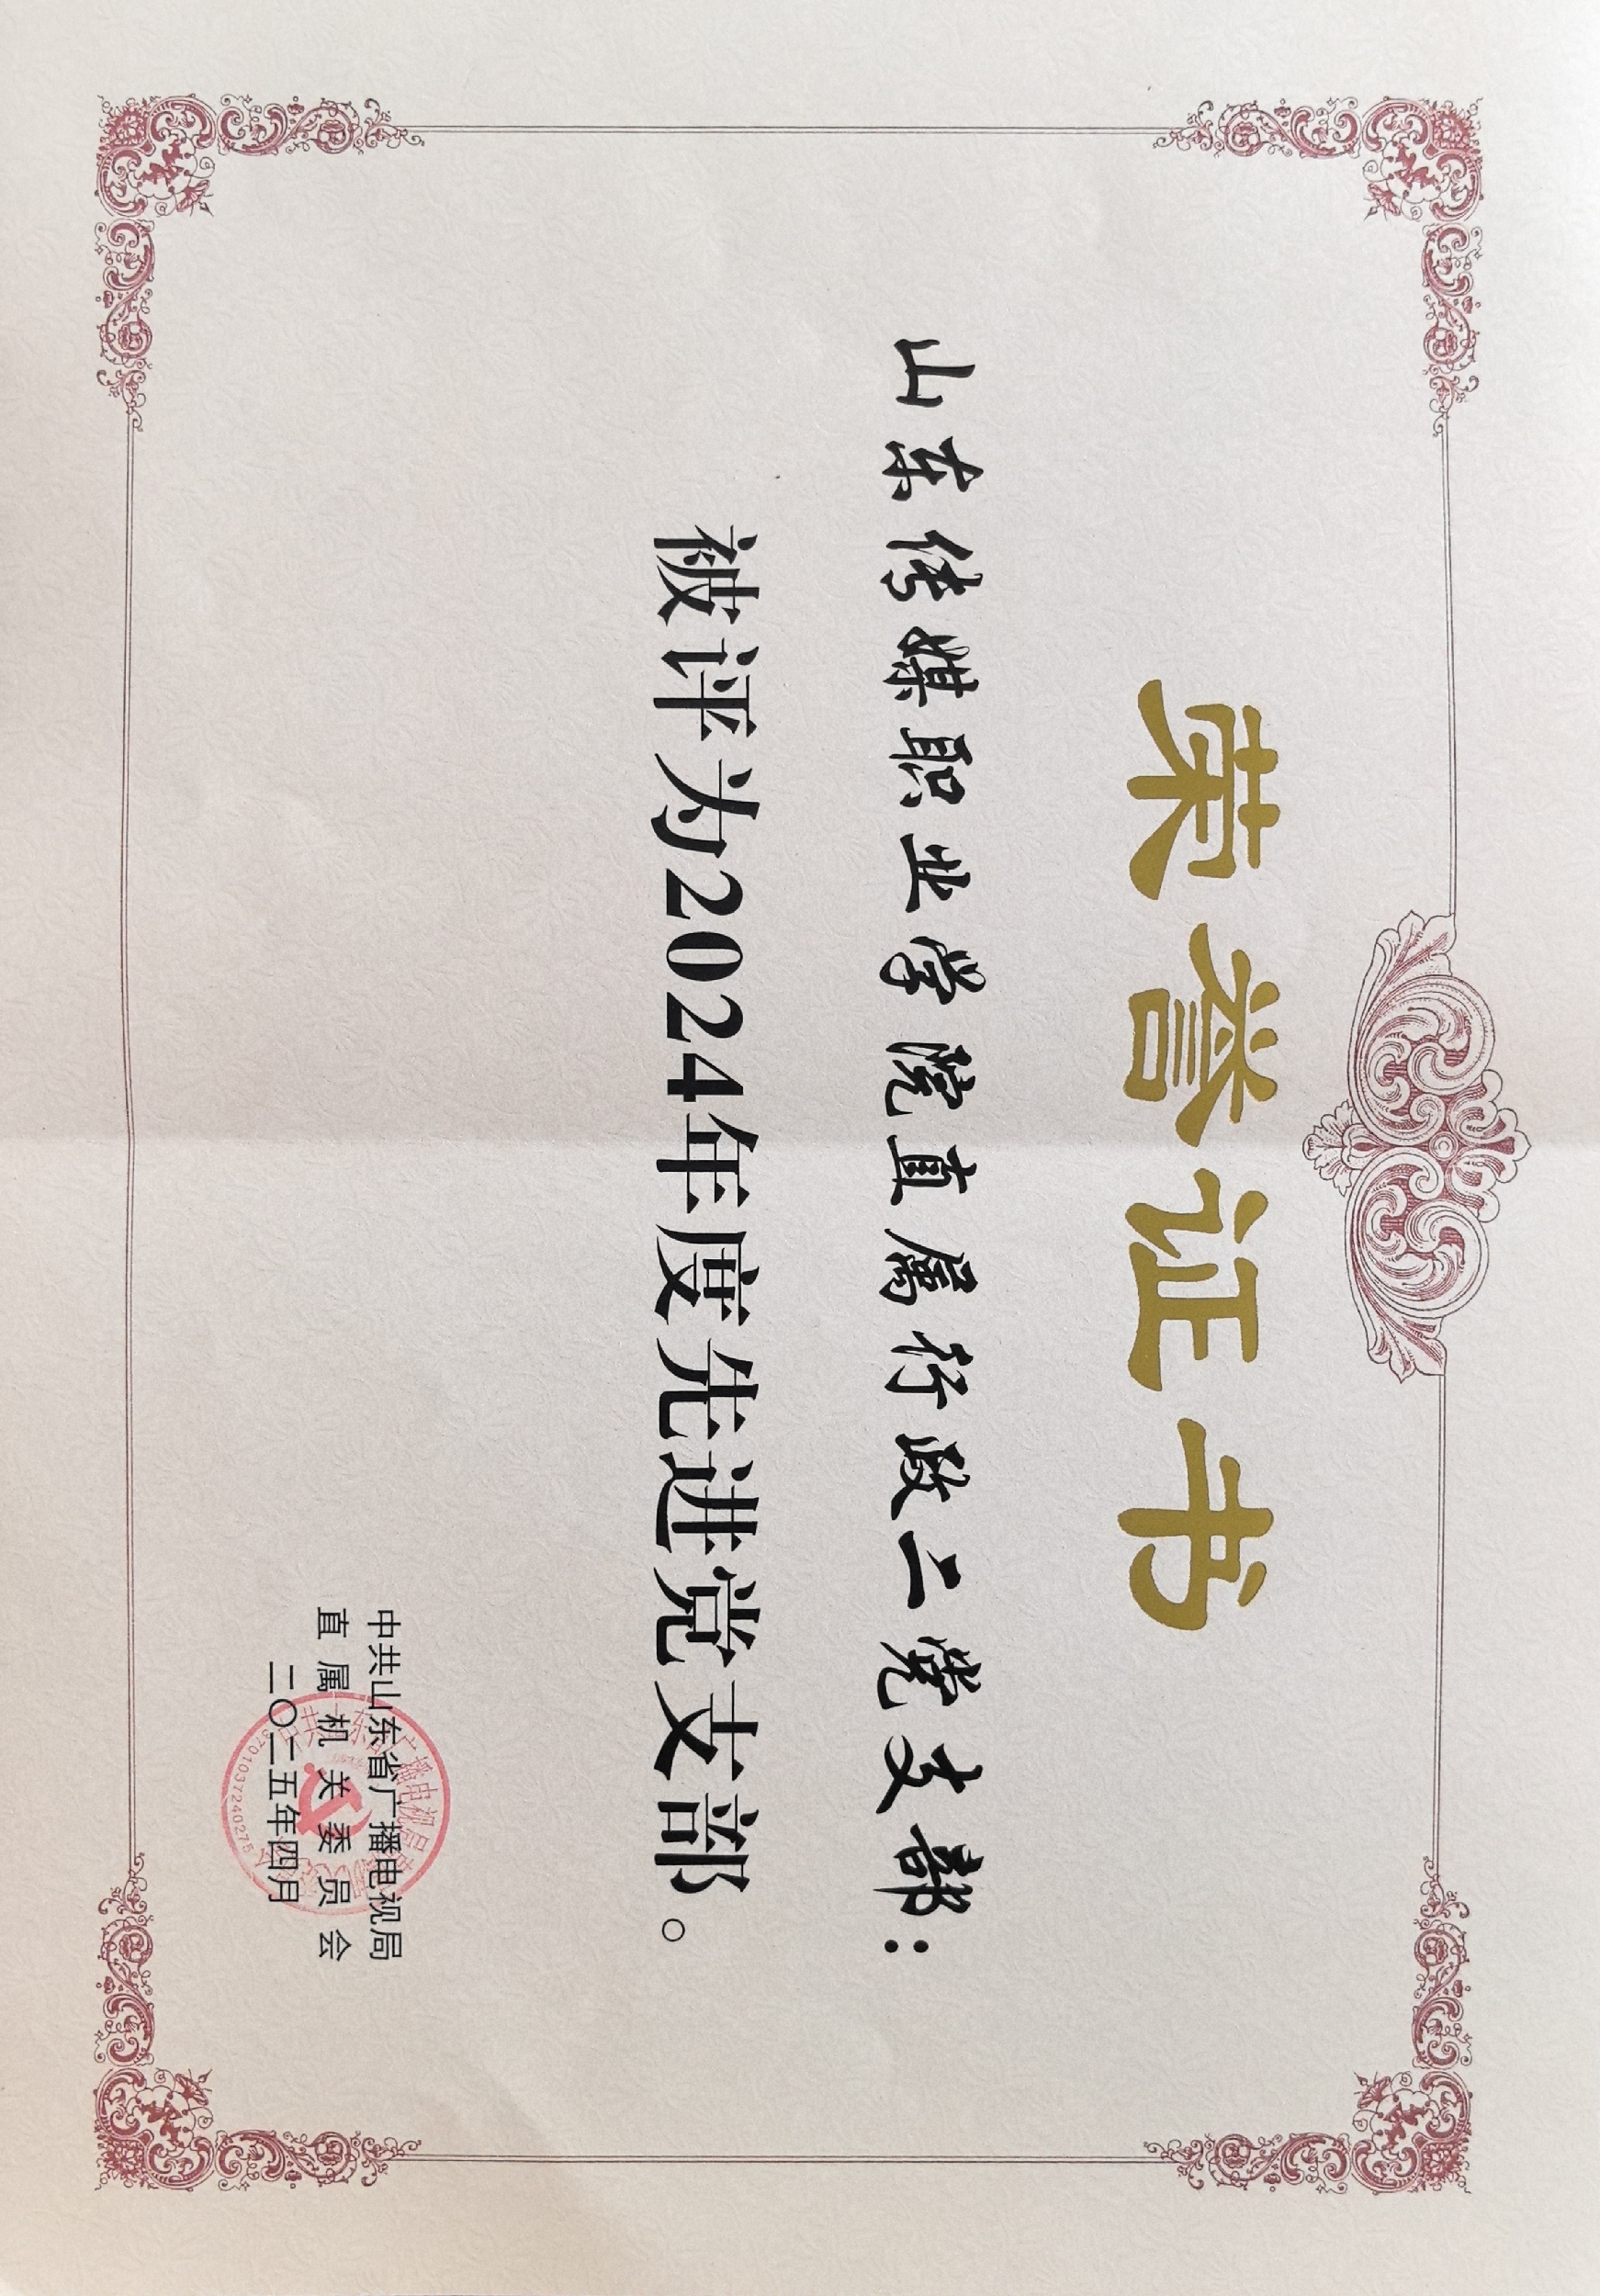 荣誉证书
山东传媒职业学院直属行政二党支部：
被评为2024年度先进党支部。
中共山东省广播电视局
直属机关委员会
二〇二五年四月
3701037240275